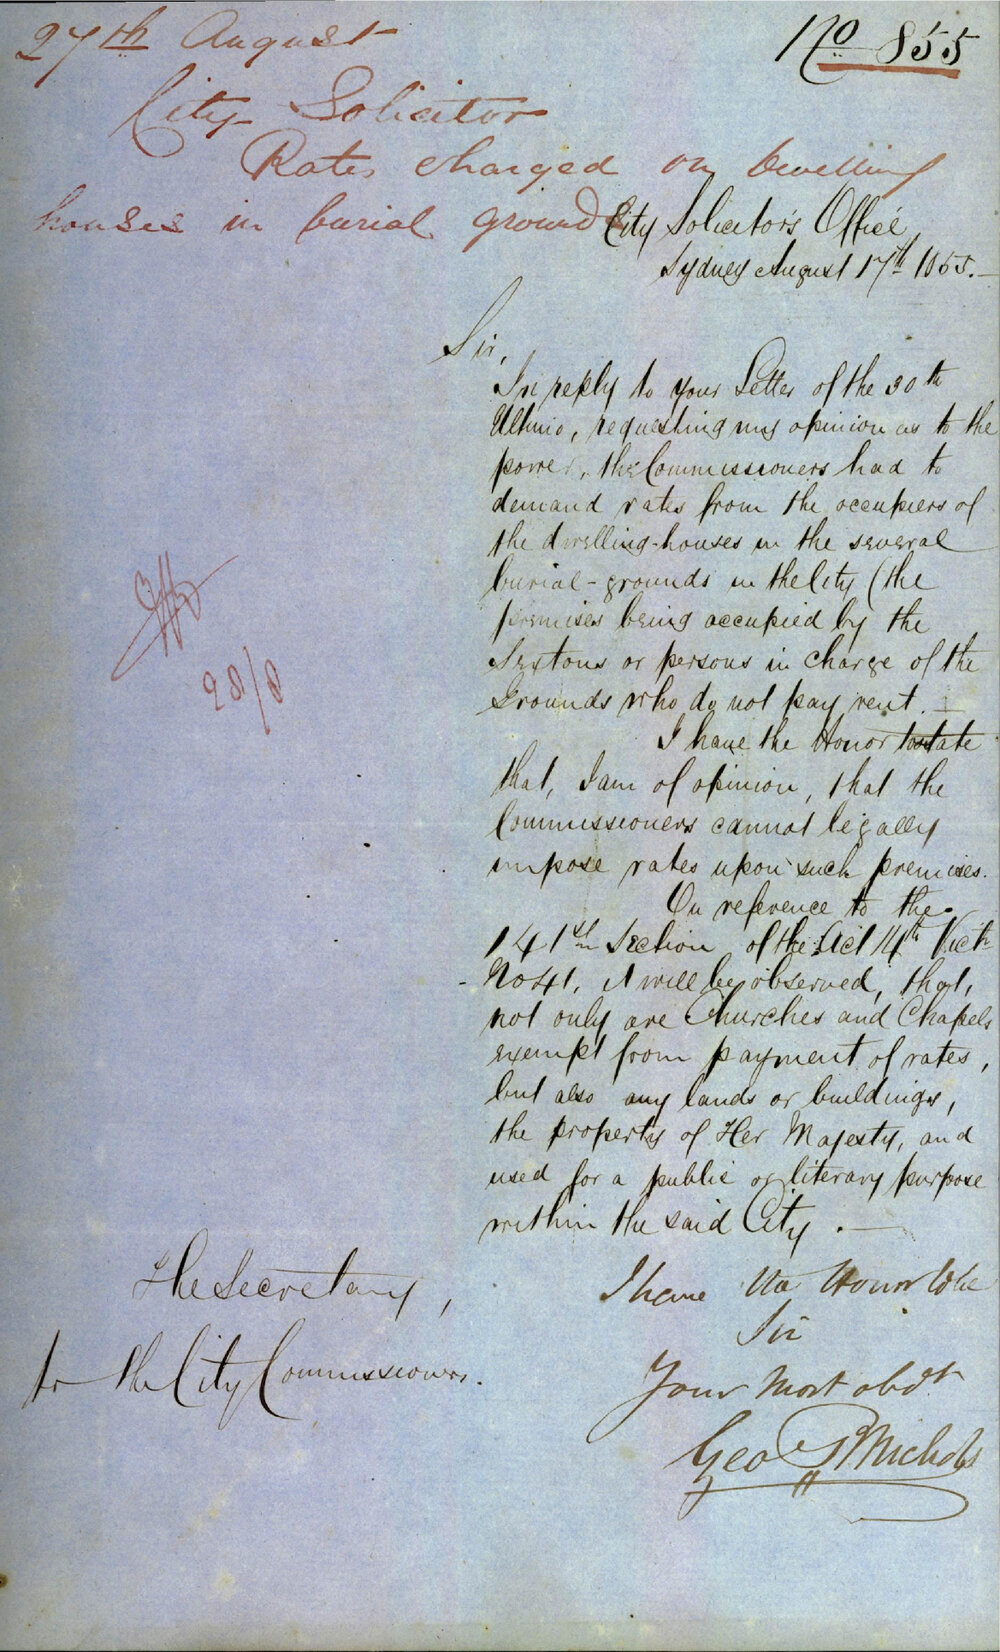 27th August
No 855
City Solicitor
Rates charged on dwelling
houses in burial grounds
City Solicitor's Office
Sydney August 17th 1855.
Sir,
In reply to your Letter of the 30th
Ultimo, requesting my opinion as to the
power, the Commissioners had to
demand rates from the occupiers of
the dwelling-houses in the several
burial-grounds in the City (the
premises being occupied by the
Sextons or persons in charge of the
Grounds who do not pay rent.
I have the Honor to state
that, I am of opinion, that the
Commissioners cannot legally
impose rates upon such premises.
On reference to the
141st Section of the Act 14th Vict
No 41, it will be observed, that,
not only are Churches and Chapels
exempt from payment of rates,
but also any lands or buildings,
the property of Her Majesty, and
used for a public or literary purpose
within the said City.
28/8
I have the Honor to be
Sir
Your Most obdt
Geo R Nichols
The Secretary,
to the City Commissioners.